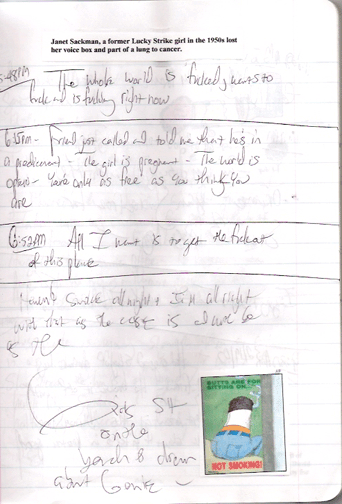 Janet Sackman, a former Lucky Strike girl in the 1950s lost
her voice box and part of a lung to cancer.
:48PM
The whole world is fucked, wants to
fuck and is fucking right now
6:15pm - Friend just called and told me that he's in
a predicament - The girl is pregnant - The world is
open - You're only as free as you think you
are
6:52PM All I want is to get the fuck out
of this place
Haven't smoked all night & I'm all right
with that as the case is
as the
on the
BUTTS ARE FOR
SITTING ON...
NOT SMOKING!